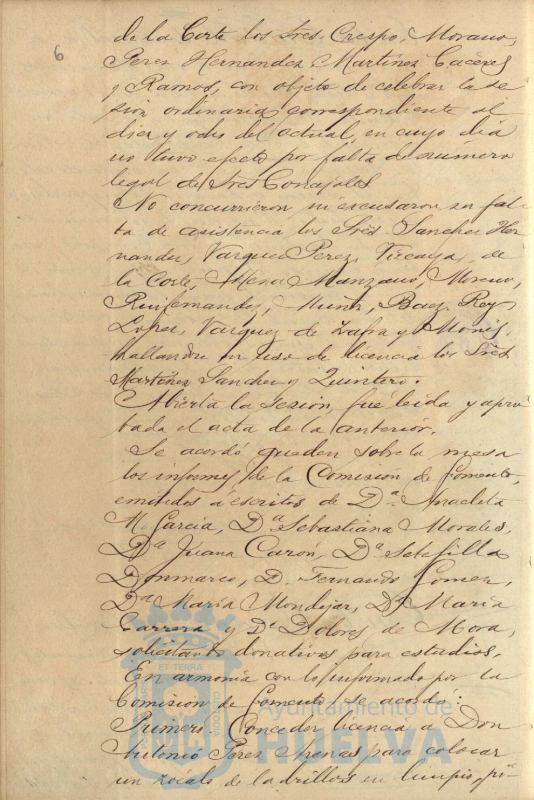 6
de la Corte los Sres Crespo, Morano,
Perez Hernandez Martinez Caceres
y Ramos, con objeto de celebrar la se
sion ordinaria correspondiente al
diez y ocho del actual, en cuyo dia
no tuvo efecto por falta de número
legal de Sres Concejales
No concurrieron ni escusaron su fal
ta de asistencia los Srēs. Sanchez Her
nandez, Vazquez Perez, Vizcaya, de
la Corte, Mena Manzano, Moreno,
Ruifernandez, Muñiz, Baez, Rey,
Lopez, Vazquez de Zafra y Monis,
hallandose en uso de licencia los Srēs
Martinez Sanchez y Quintero.
Abierta la sesion, fue leida y apro
bada el acta de la anterior.
Se acordó queden sobre la mesa
los informes de la Comisión de Fomento,
emitidos á escritos de Dª. Anacleta
M. Garcia, Dª Sebastiana Morales,
Dª Juana Caron, Dª Setefilla
Donmarco, D. Fernando Gomez,
Dª Maria Mondejar, Dª Maria
Carrera y Dª Dolores de Mora,
solicitando donativos para estudios.
En armonia con lo informado por la
Comision de Fomento se acordó:
Primero. Conceder licencia a Don
Antonio Perez Arenas para colocar
un zócalo de ladrillos en limpio,
ET TERRA
CUSTODIA
Ayuntamiento de
HUELVA